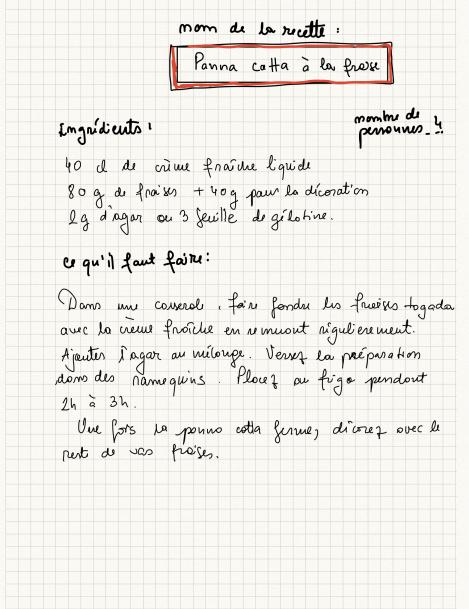 nom de la recette :
Panna catta à la fraise
nombre de
personnes_4
Ingrédients :
40 cl de crème fraîche liquide
80 g de fraises + 40g pour la décoration
2g d'agar ou 3 feuille de gélatine.
ce qu'il faut faire :
Dans une casserole, faire fondre les fraises tagada
avec la crème fraîche en remuant régulierement.
Ajoutes l'agar au mélange. Versez la préparation
dans des ramequins. Placez au frigo pendant
2h à 3h.
Une fois la panna cotta ferme, décorez avec le
rest de vos fraises.